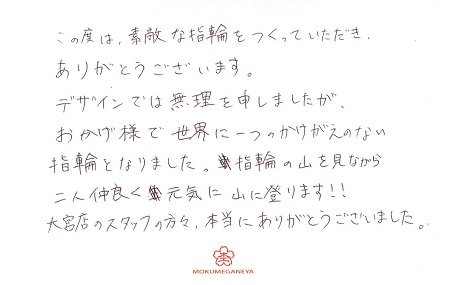 この度は、素敵な指輪をつくっていただき、
ありがとうございます。
デザインでは無理を申しましたが、
おかげ様で世界に一つのかけがえのない
指輪となりました。指輪の山を見ながら
二人仲良く元気に山に登ります!!
大宮店のスタッフの方々、本当にありがとうございました。
MOKUMEGANEYA